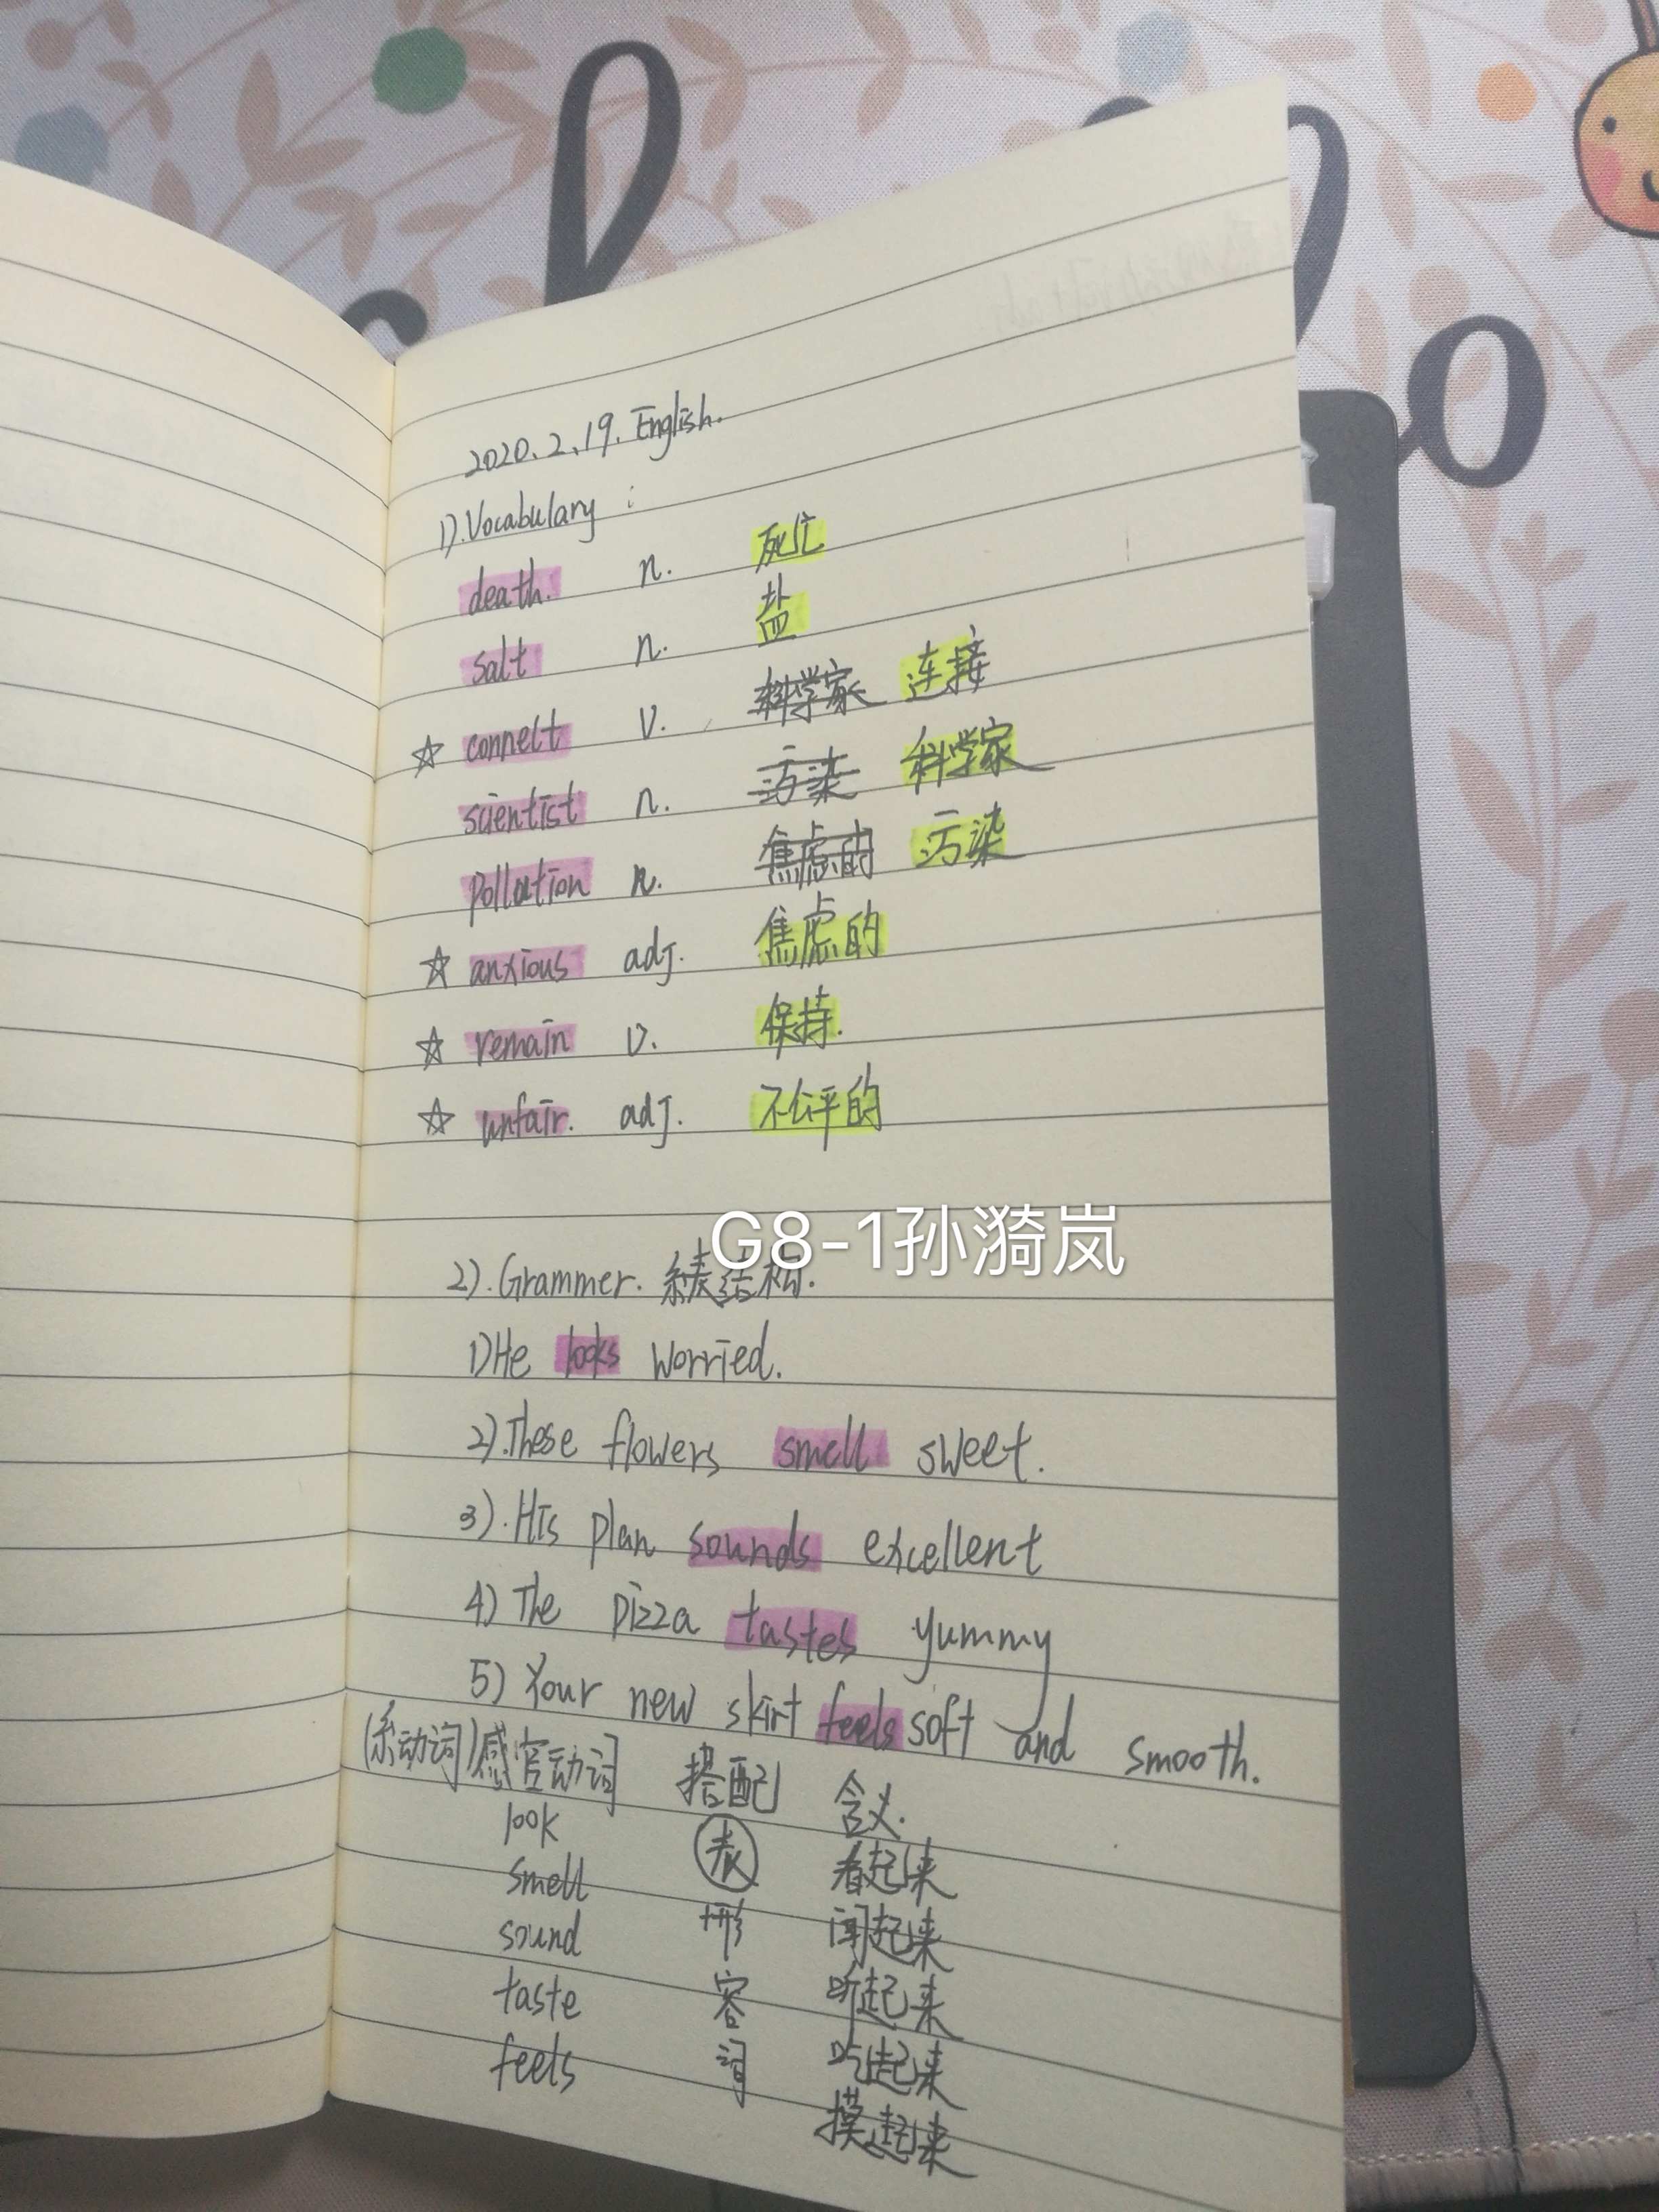 2020.2.19. English.
1).Vocabulary :
death. n. 死亡
salt n. 盐
☆ connect v. 科学家 连接
scientist n. 污染 科学家
pollution n. 焦虑的 污染
☆ anxious adj. 焦虑的
☆ remain v. 保持.
☆ unfair. adj. 不公平的
G8-1孙漪岚
2).Grammer. 系表结构.
1)He looks worried.
2).These flowers smell sweet.
3).His plan sounds excellent
4) The pizza tastes yummy
5) Your new skirt feels soft and smooth.
(系动词)感官动词 搭配 含义.
look 表 看起来
smell +形 闻起来
sound 容 听起来
taste 词 吃起来
feels 摸起来